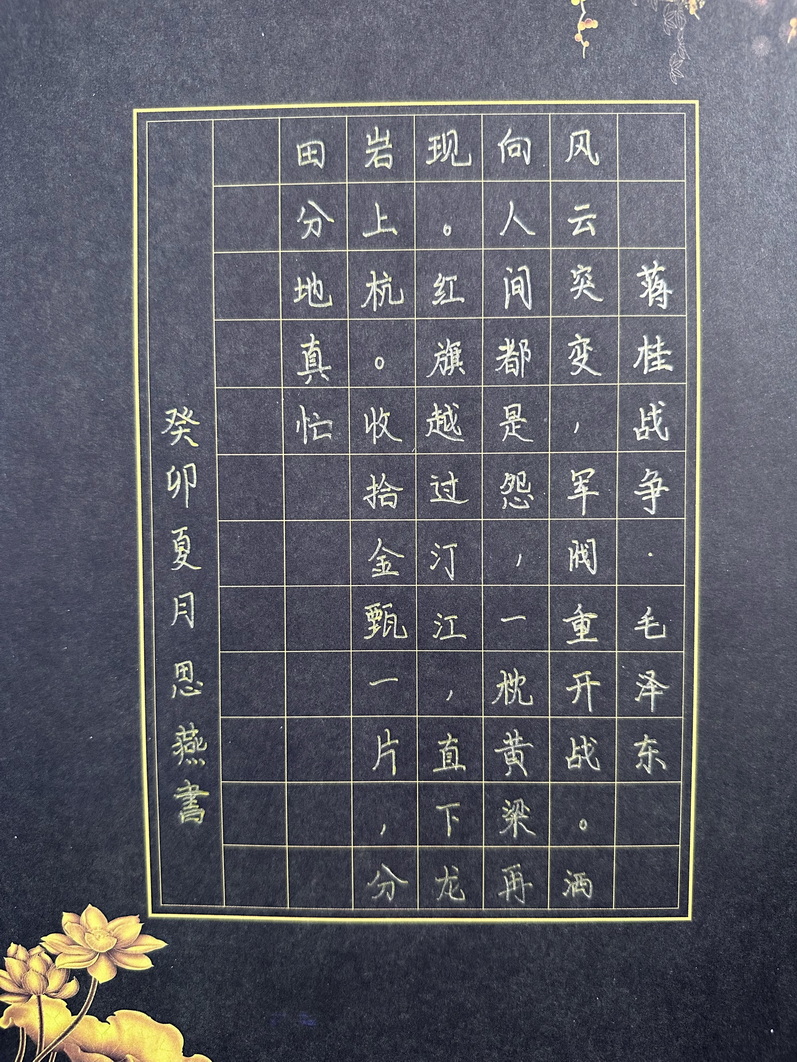 蒋桂战争·毛泽东
风云突变，军阀重开战。洒
向人间都是怨，一枕黄梁再
现。红旗越过汀江，直下龙
岩上杭。收拾金甄一片，分
田分地真忙
癸卯夏月思燕書